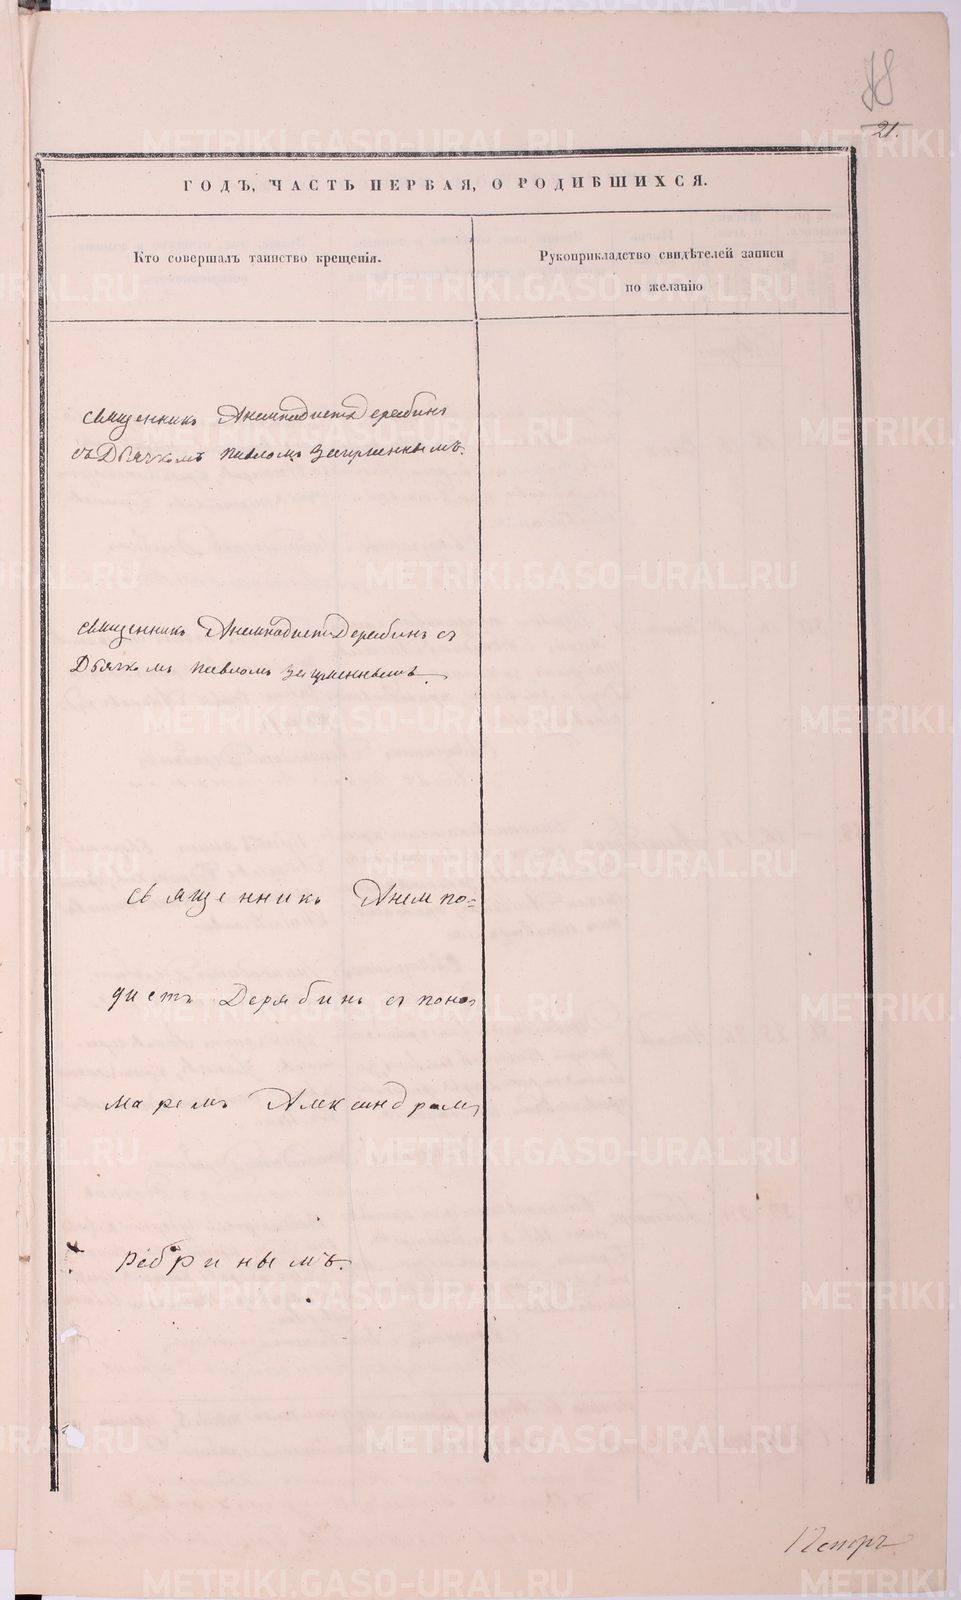 21.
ГОДЪ, ЧАСТЬ ПЕРВАЯ, О РОДИВШИХСЯ.
Кто совершалъ таинство крещенія.
Рукоприкладство свидѣтелей записи
по желанію
священникъ Анемподистъ Дерябинъ
съ Дьячкомъ Павломъ
священникъ Анемподистъ Дерябинъ съ
Дьячкомъ Павломъ
священникъ Анемпо=
дистъ Дерябинъ съ поно=
маремъ Александромъ
Ребринымъ.
METRIKI.GASO-URAL.RU